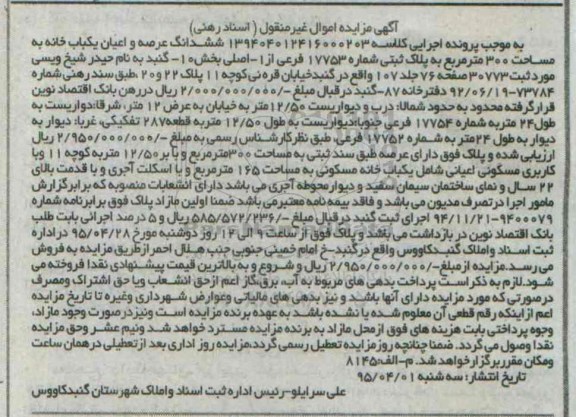 آگهی مزایده اموال غیرمنقول ( اسناد رهنی )
به موجب پرونده اجرایی کلاسه ۱۳۹۴۰۴۰۱۲۴۱۶۰۰۰۲۰۳ ششدانگ عرصه و اعیان یکباب خانه به
مساحت ۳۰۰ مترمربع به پلاک ثبتی شماره ۱۷۷۵۳ فرعی از۱- اصلی بخش۱۰- گنبد به نام حیدر شیخ ویسی
مورد ثبت۳۰۷۷۳ صفحه۷۶ جلد۱۰۷ واقع در گنبدخیابان قره نی کوچه۱۱ پلاک۲۲ و۲۰ ،طبق سند رهنی شماره
۷۳۷۸۴-۹۲/۰۶/۱۹ دفترخانه ۸۷-گنبد در قبال مبلغ -/۲/۰۰۰/۰۰۰/۰۰۰ ریال دررهن بانک اقتصاد نوین
قرار گرفته محدود به حدود شمالا: درب و دیواریست ۱۲/۵۰متر به خیابان به عرض ۱۲ متر، شرقا:دواریست به
طول۲۴ متربه شماره ۱۷۷۵۴ فرعی جنوبا:دیواریست به طول ۱۲/۵۰ متربه قطعه۲۸۷ تفکیکی، غربا: دیوار به
دیوار به طول ۲۴متر به شماره ۱۷۷۵۲ فرعی، طبق نظر کارشناس رسمی به مبلغ -/۲/۹۵۰/۰۰۰/۰۰۰ ریال
ارزیابی شده و پلاک فوق دارای عرصه طبق سند ثبتی به مساحت ۳۰۰مترمربع و با بر ۱۲/۵۰ متربه کوچه ۱۱ وبا
کاربری مسکونی اعیانی شامل یکباب خانه مسکونی به مساحت ۱۶۵ مترمربع و با اسکلت آجری و با قدمت بالای
۲۲ سال و نمای ساختمان سیمان سفید و دیوار محوطه آجری می باشد دارای انشعابات منصوبه که برابر گزارش
مامور اجرا در تصرف مدیون می باشد و فاقد بیمه نامه معتبرمی باشد ضمنا اولین مازاد پلاک فوق برابرنامه شماره
۹۴۰۰۰۷۹-۹۴/۱۱/۲۱ اجرای ثبت گنبد در قبال مبلغ -/۵۸۵/۵۷۲/۲۳۶ ریال و ۵ درصد اجرائی بابت طلب
بانک اقتصاد نوین در بازداشت می باشد و پلاک فوق از ساعت ۹ الی ۱۲ روز دوشنبه مورخ ۹۵/۰۴/۲۸ در اداره
ثبت اسناد واملاک گنبدکاووس واقع درگنبد-خ امام خمینی جنوبی جنب هلال احمر از طریق مزایده به فروش
می رسد.مزایده از مبلغ-/۲/۹۵۰/۰۰۰/۰۰۰ ریال و شروع و به بالاترین قیمت پیشنهادی نقدا فروخته می
شود.لازم به ذکر است پرداخت بدهی های مربوط به آب، برق،گاز اعم ازحق انشعاب ویا حق اشتراک ومصرف
درصورتی که مورد مزایده دارای آنها باشد و نیز بدهی های مالیاتی وعوارض شهرداری وغیره تا تاریخ مزایده
اعم ازاینکه رقم قطعی آن معلوم شده یا نشده باشد به عهده برنده مزایده است ونیزدر صورت وجود مازاد،
وجوه پرداختی بابت هزینه های فوق ازمحل مازاد به برنده مزایده مسترد خواهد شد ونیم عشر وحق مزایده
نقدا وصول می گردد. ضمنا چنانچه روزمزایده تعطیل رسمی گردد،مزایده روز اداری بعد ازتعطیلی درهمان ساعت
ومکان مقرربرگزارخواهد شد. م-الف۸۱۴۵
تاریخ انتشار: سه شنبه ۹۵/۰۴/۰۱
علی سرایلو-رئیس اداره ثبت اسناد واملاک شهرستان گنبدکاووس